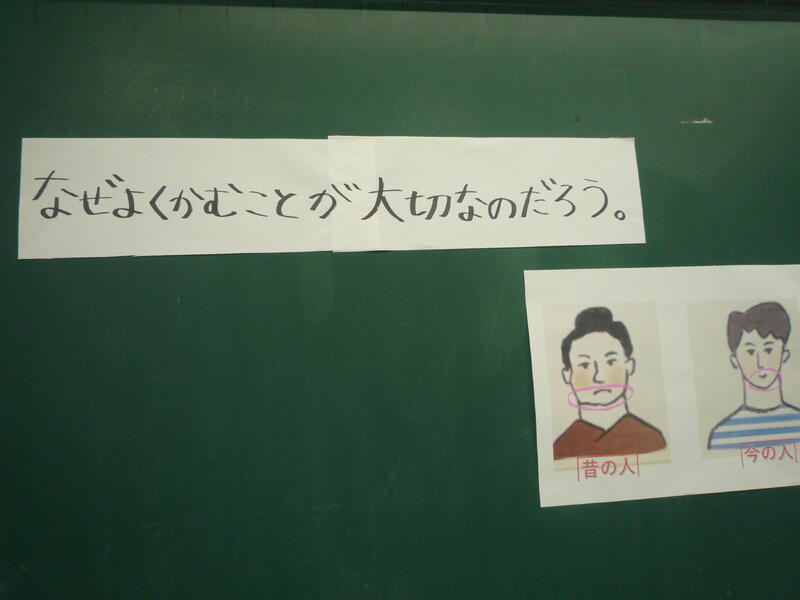 なぜよくかむことが大切なのだろう。
昔の人
今の人